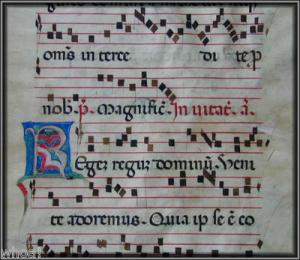 om̄s in terce di te p̄
nob. p̄. Magnific̄. In vitat̄. a.
Regez reguz dominū. Veni
te adoremus. Quia ip se ē co
whocr